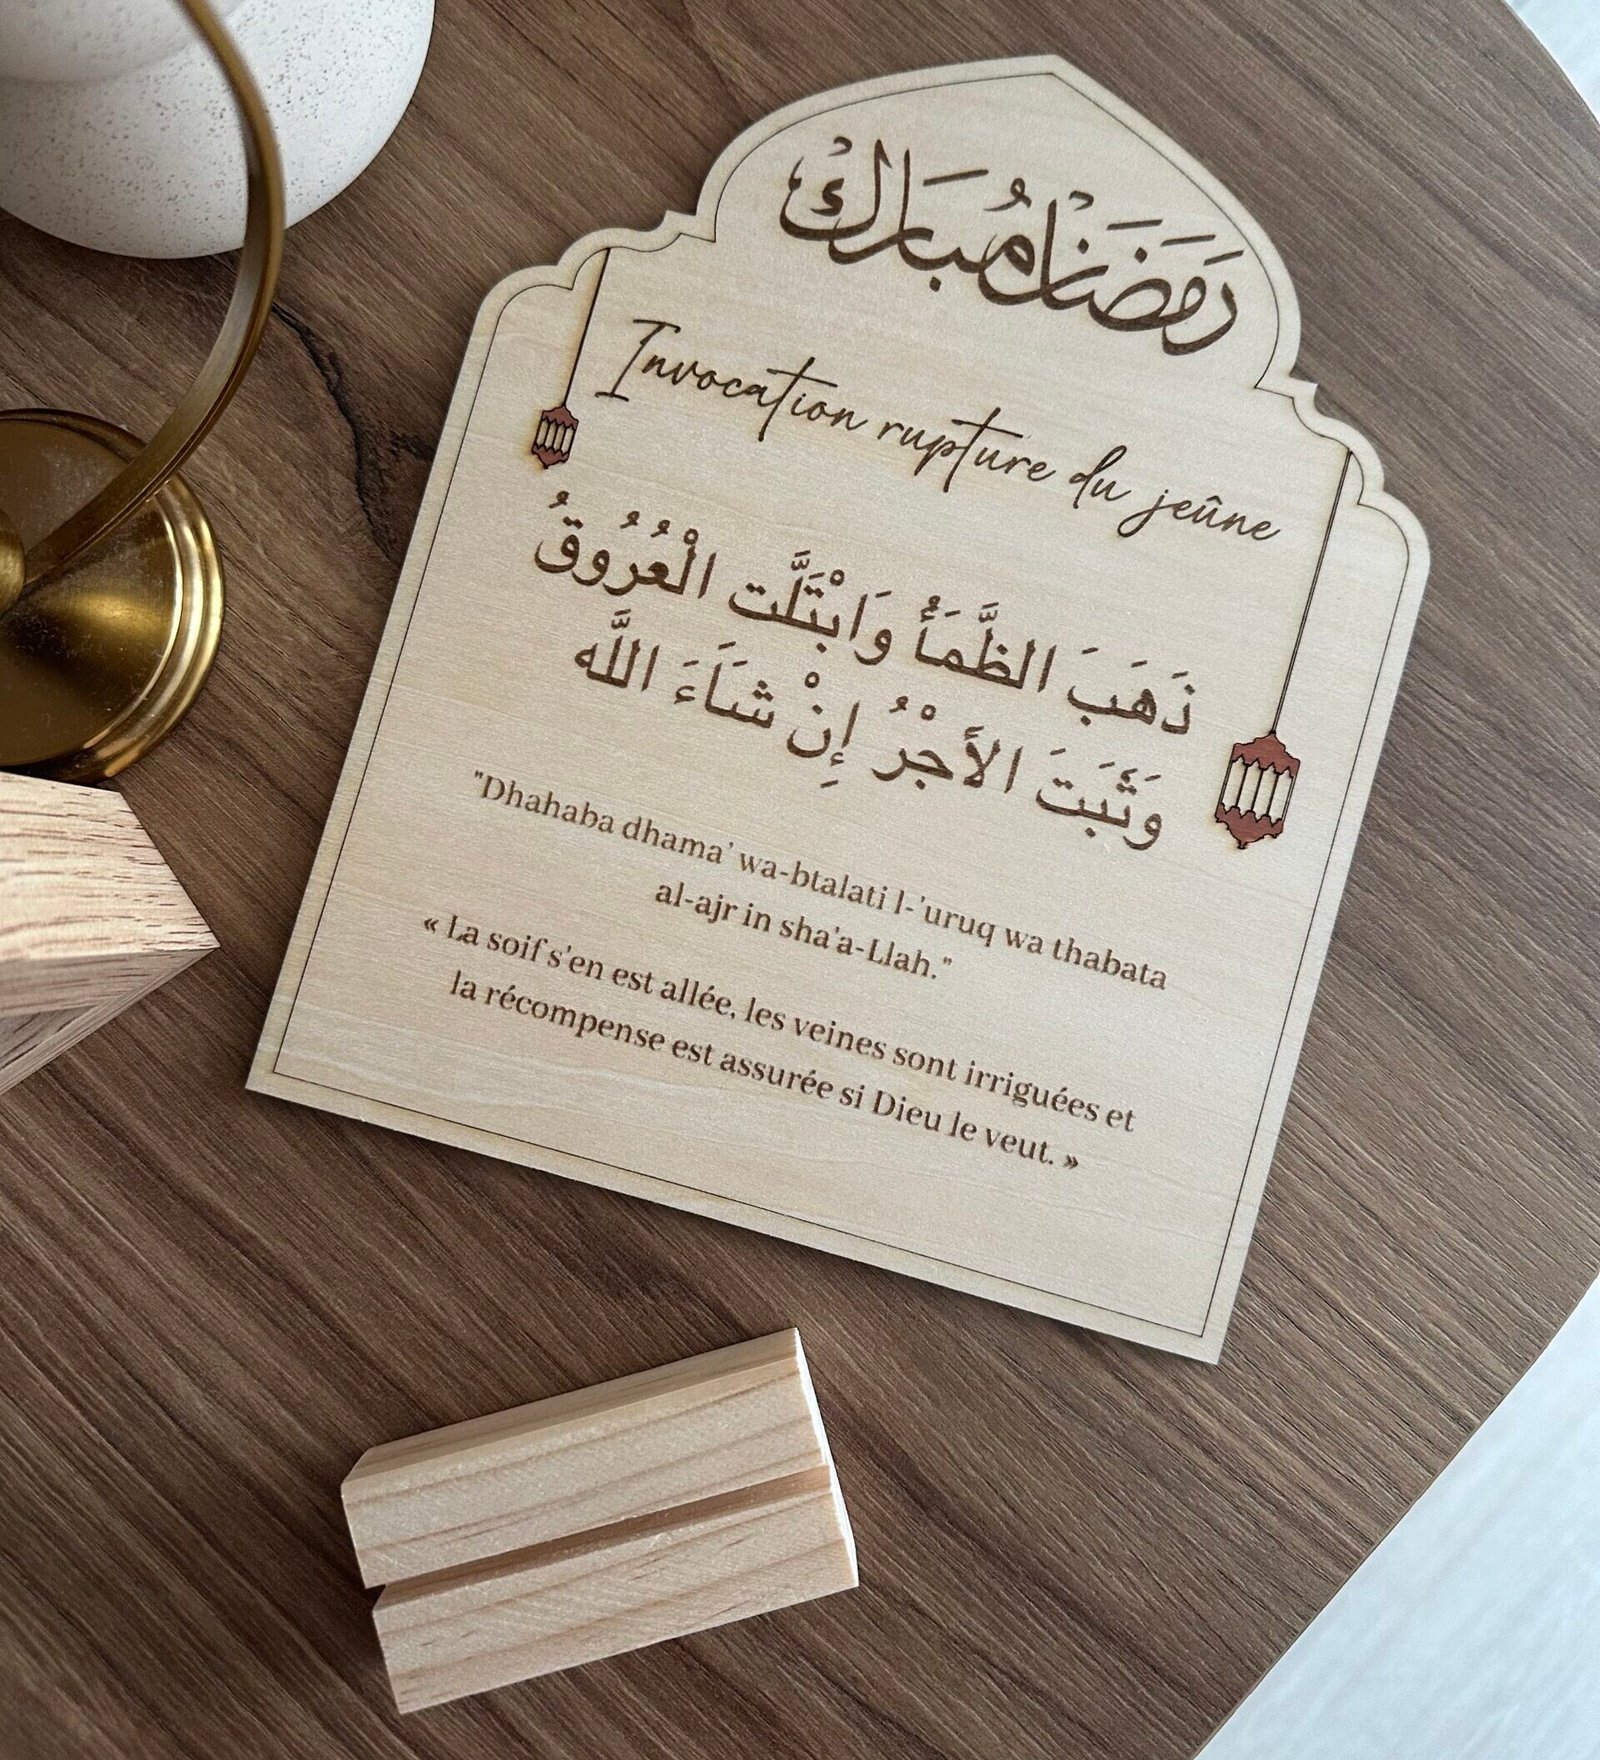 رَمَضَان مُبَارَك
Invocation rupture du jeûne
ذَهَبَ الظَّمَأُ وَابْتَلَّت الْعُرُوقُ
وَثَبَتَ الأَجْرُ إِنْ شَاءَ اللَّه
"Dhahaba dhama' wa-btalati l-'uruq wa thabata
al-ajr in sha'a-Llah."
« La soif s'en est allée, les veines sont irriguées et
la récompense est assurée si Dieu le veut. »